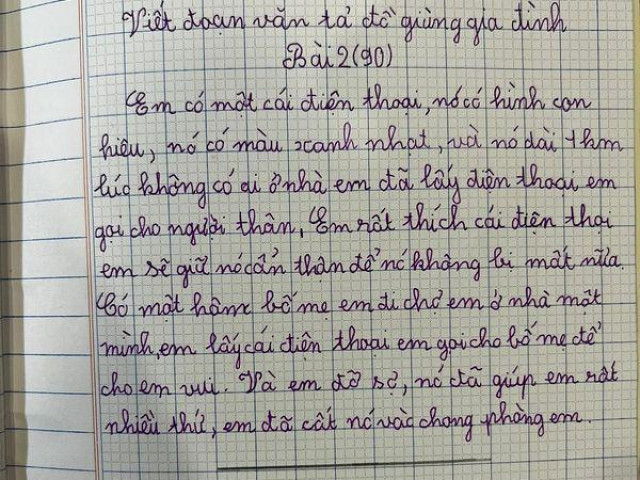 Viết đoạn văn tả đồ giùng gia đình
Bài 2 (90)
Em có một cái điện thoại, nó có hình con
hiêu, nó có màu xanh nhạt, và nó dài 1 hm
lúc không có ai ở nhà em đã lấy điện thoại em
gọi cho người thân, Em rất thích cái điện thoại
em sẽ giữ nó cẩn thận để nó không bị mất nữa.
Có một hôm bố mẹ em đi chợ em ở nhà một
mình, em lấy cái điện thoại em gọi cho bố mẹ để
cho em vui. Và em đỡ sợ, nó đã giúp em rất
nhiều thứ, em đã cất nó vào chong phòng em.